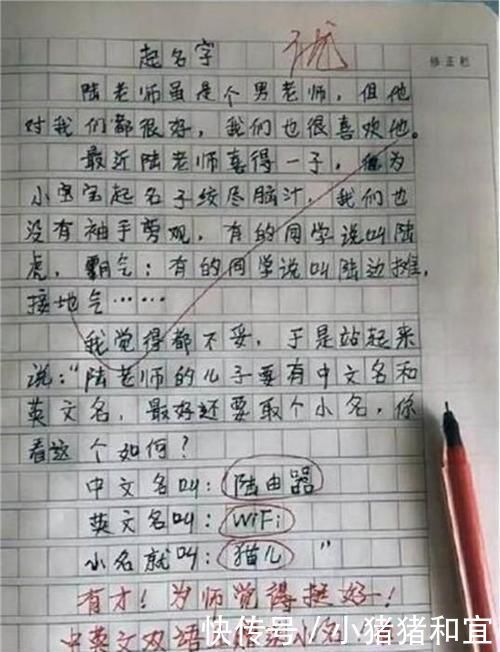 起名字
修正栏
陆老师虽是个男老师，但他
对我们都很好，我们也很喜欢他。
最近陆老师喜得一子，他为
小宝宝起名子绞尽脑汁，我们也
没有袖手旁观，有的同学说叫陆
虎，霸气；有的同学说叫陆边摊，
接地气……
我觉得都不妥，于是站起来
说：“陆老师的儿子要有中文名和
英文名，最好还要取个小名，你
看这个如何？
中文名叫：陆由器
英文名叫：WiFi
小名就叫：猫儿”
有才！为师觉得挺好！
中英文双语
快传号／小猪猪和宜